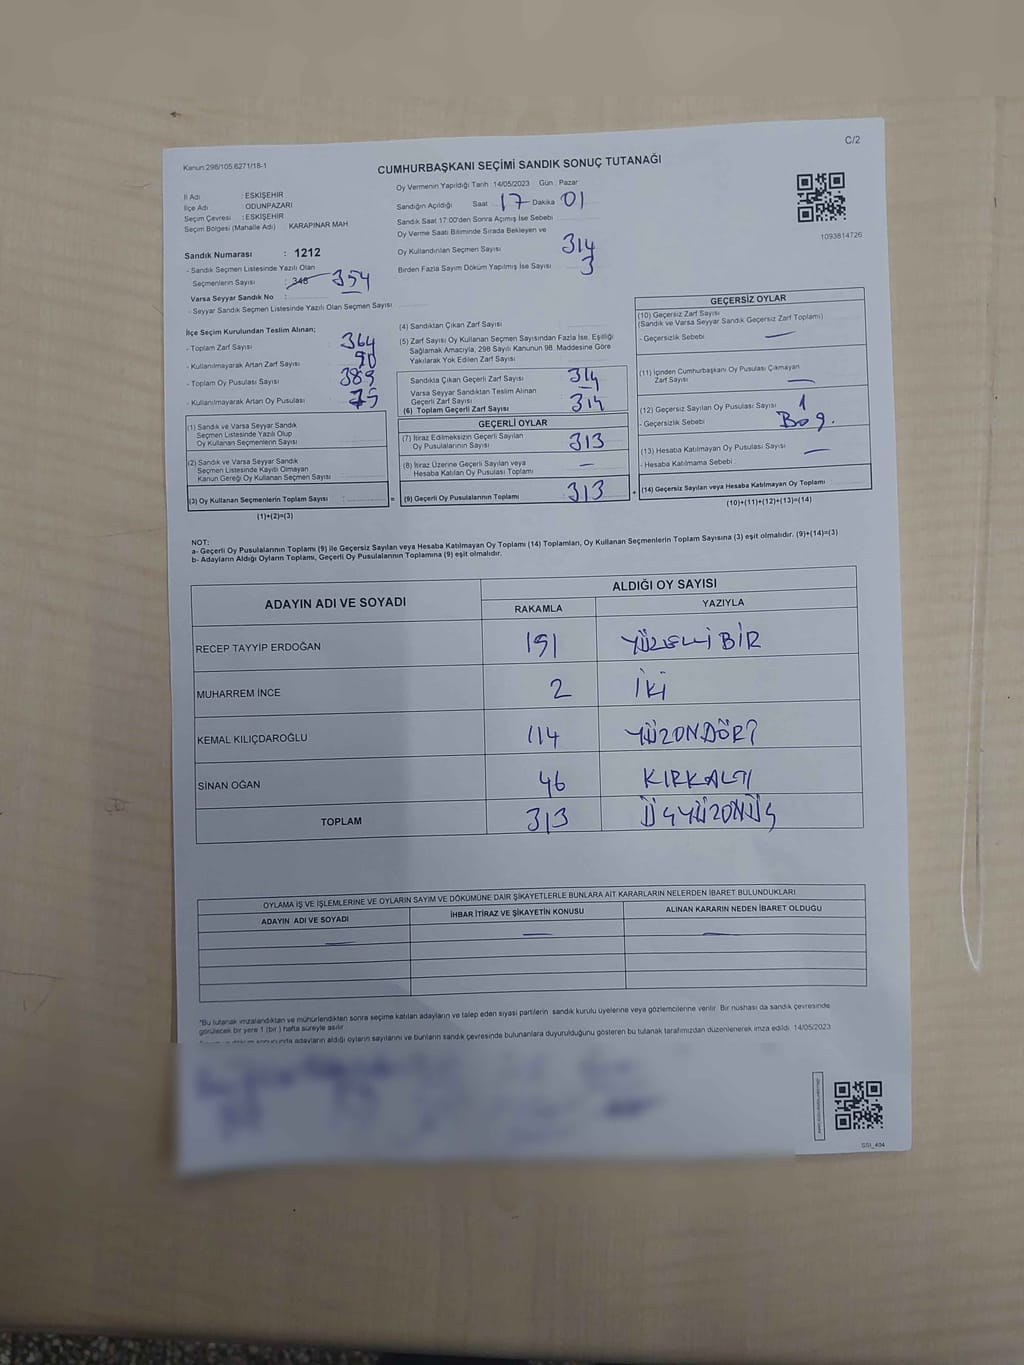 C/2
Kanun:298/105,6271/18-1
CUMHURBAŞKANI SEÇİMİ SANDIK SONUÇ TUTANAĞI
İl Adı : ESKİŞEHİR
İlçe Adı : ODUNPAZARI
Seçim Çevresi : ESKİŞEHİR
Seçim Bölgesi (Mahalle Adı) : KARAPINAR MAH
Oy Vermenin Yapıldığı Tarih 14/05/2023 Gün : Pazar
Sandığın Açıldığı Saat 17 Dakika 01
Sandık Saat 17:00'den Sonra Açımış İse Sebebi
Oy Verme Saati Bitiminde Sırada Bekleyen ve
Oy Kullandırılan Seçmen Sayısı 314
Birden Fazla Sayım Döküm Yapılmış İse Sayısı 3
1093814726
Sandık Numarası : 1212
- Sandık Seçmen Listesinde Yazılı Olan
Seçmenlerin Sayısı : 348 354
Varsa Seyyar Sandık No :
- Seyyar Sandık Seçmen Listesinde Yazılı Olan Seçmen Sayısı
İlçe Seçim Kurulundan Teslim Alınan;
- Toplam Zarf Sayısı 364
- Kullanılmayarak Artan Zarf Sayısı 90
- Toplam Oy Pusulası Sayısı 389
- Kullanılmayarak Artan Oy Pusulası 75
(1) Sandık ve Varsa Seyyar Sandık
Seçmen Listesinde Yazılı Olup
Oy Kullanan Seçmenlerin Sayısı
(2) Sandık ve Varsa Seyyar Sandık
Seçmen Listesinde Kayıtlı Olmayan
Kanun Gereği Oy Kullanan Seçmen Sayısı
(3) Oy Kullanan Seçmenlerin Toplam Sayısı :
=
(1)+(2)=(3)
(4) Sandıktan Çıkan Zarf Sayısı
(5) Zarf Sayısı Oy Kullanan Seçmen Sayısından Fazla İse, Eşitliği
Sağlamak Amacıyla, 298 Sayılı Kanunun 98. Maddesine Göre
Yakılarak Yok Edilen Zarf Sayısı
Sandıkta Çıkan Geçerli Zarf Sayısı 314
Varsa Seyyar Sandıktan Teslim Alınan
Geçerli Zarf Sayısı —
(6) Toplam Geçerli Zarf Sayısı 314
GEÇERLİ OYLAR
(7) İtiraz Edilmeksizin Geçerli Sayılan
Oy Pusulalarının Sayısı 313
(8) İtiraz Üzerine Geçerli Sayılan veya
Hesaba Katılan Oy Pusulası Toplamı —
(9) Geçerli Oy Pusulalarının Toplamı 313
+
GEÇERSİZ OYLAR
(10) Geçersiz Zarf Sayısı
(Sandık ve Varsa Seyyar Sandık Geçersiz Zarf Toplamı)
- Geçersizlik Sebebi —
(11) İçinden Cumhurbaşkanı Oy Pusulası Çıkmayan
Zarf Sayısı —
(12) Geçersiz Sayılan Oy Pusulası Sayısı 1
- Geçersizlik Sebebi Boş.
(13) Hesaba Katılmayan Oy Pusulası Sayısı —
- Hesaba Katılmama Sebebi
(14) Geçersiz Sayılan veya Hesaba Katılmayan Oy Toplamı :
(10)+(11)+(12)+(13)=(14)
NOT:
a- Geçerli Oy Pusulalarının Toplamı (9) ile Geçersiz Sayılan veya Hesaba Katılmayan Oy Toplamı (14) Toplamları, Oy Kullanan Seçmenlerin Toplam Sayısına (3) eşit olmalıdır. (9)+(14)=(3)
b- Adayların Aldığı Oyların Toplamı, Geçerli Oy Pusulalarının Toplamına (9) eşit olmalıdır.
ADAYIN ADI VE SOYADI ALDIĞI OY SAYISI
RAKAMLA YAZIYLA
RECEP TAYYİP ERDOĞAN 151 YÜZELLİBİR
MUHARREM İNCE 2 İKİ
KEMAL KILIÇDAROĞLU 114 YÜZONDÖRT
SİNAN OĞAN 46 KIRKALTI
TOPLAM 313 ÜÇYÜZONÜÇ
OYLAMA İŞ VE İŞLEMLERİNE VE OYLARIN SAYIM VE DÖKÜMÜNE DAİR ŞİKAYETLERLE BUNLARA AİT KARARLARIN NELERDEN İBARET BULUNDUKLARI
ADAYIN ADI VE SOYADI İHBAR İTİRAZ VE ŞİKAYETİN KONUSU ALINAN KARARIN NEDEN İBARET OLDUĞU
— — —
*Bu tutanak imzalandıktan ve mühürlendikten sonra seçime katılan adayların ve talep eden siyasi partilerin sandık kurulu üyelerine veya gözlemcilerine verilir. Bir nüshası da sandık çevresinde
görülecek bir yere 1 (bir) hafta süreyle asılır
sonucunda adayların aldığı oyların sayılarını ve bunların sandık çevresinde bulunanlara duyurulduğunu gösteren bu tutanak tarafımızdan düzenlenerek imza edildi 14/05/2023
SSI_404